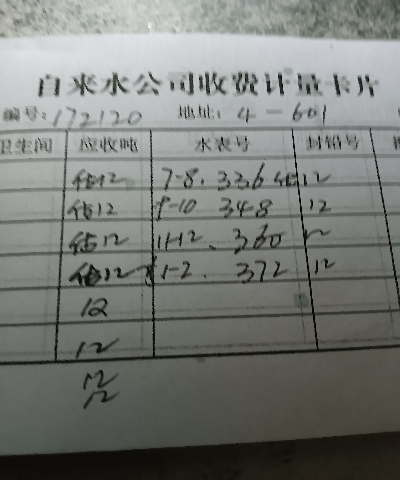 自来水公司收费计量卡片
编号:172120 地址:4-601
卫生间 应收吨 水表号 封铅号
估12 7-8. 336 估12
估12 9-10 348 12
估12 11-12. 360 12
估12 1-2. 372 12
12
12
12
12